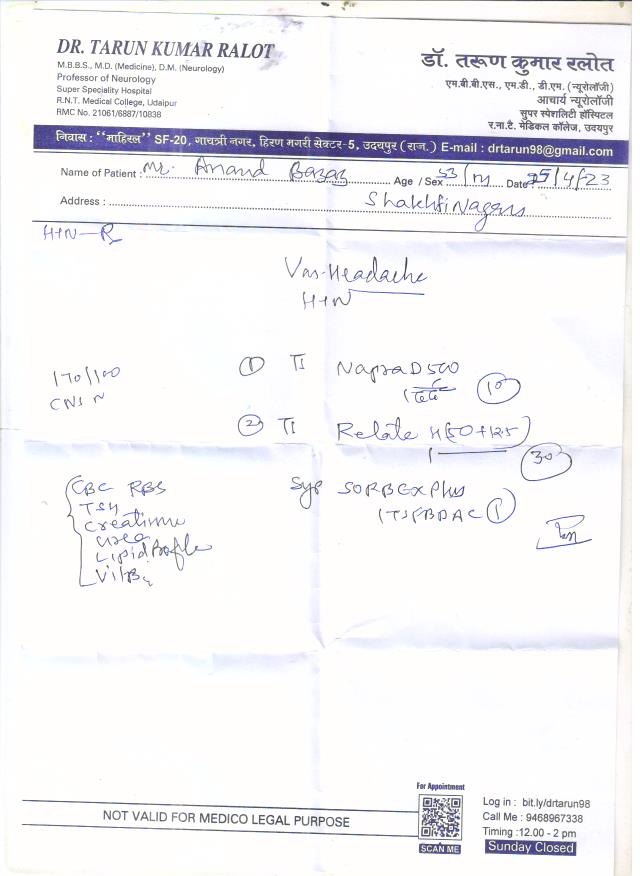 DR. TARUN KUMAR RALOT
M.B.B.S., M.D. (Medicine), D.M. (Neurology)
Professor of Neurology
Super Speciality Hospital
R.N.T. Medical College, Udaipur
RMC No. 21061/6887/10838
डॉ. तरूण कुमार रलोत
एम.बी.बी.एस., एम.डी., डी.एम. (न्यूरोलॉजी)
आचार्य न्यूरोलॉजी
सुपर स्पेशलिटी हॉस्पिटल
र.ना.टै. मेडिकल कॉलेज, उदयपुर
निवास : "माहिरल" SF-20, गायत्री नगर, हिरण मगरी सेक्टर-5, उदयपुर (राज.) E-mail : drtarun98@gmail.com
Name of Patient : Mr. Anand Age / Sex 53 / M Date 25/4/23
Address :
HTN
Vas. Headache
HTN
170/100
CNS N
① T Napra D 500
10
② T Relate H (50+12.5)
1
30
CBC RBS
TSH
Creatinine
Urea
Lipid Profile
Vit B12
Syp SORBEX Plus
1TSF BD AC ①
For Appointment
SCAN ME
NOT VALID FOR MEDICO LEGAL PURPOSE
Log in : bit.ly/drtarun98
Call Me : 9468967338
Timing :12.00 - 2 pm
Sunday Closed